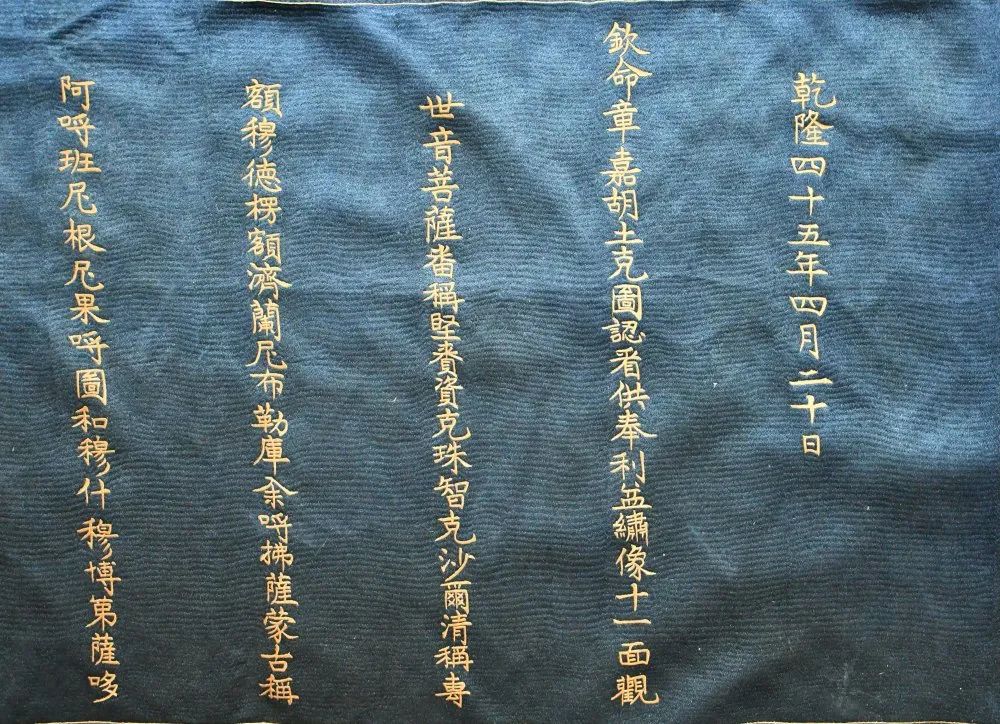 乾隆四十五年四月二十日
欽命章嘉胡土克圖認看供奉利益繡像十一面觀
世音菩薩畨稱堅賚資克珠智克沙爾清稱專
額穆德楞額濟蘭尼布勒庫余呼拂薩蒙古稱
阿呼班尼根尼果呼圖和穆什穆博第薩哆